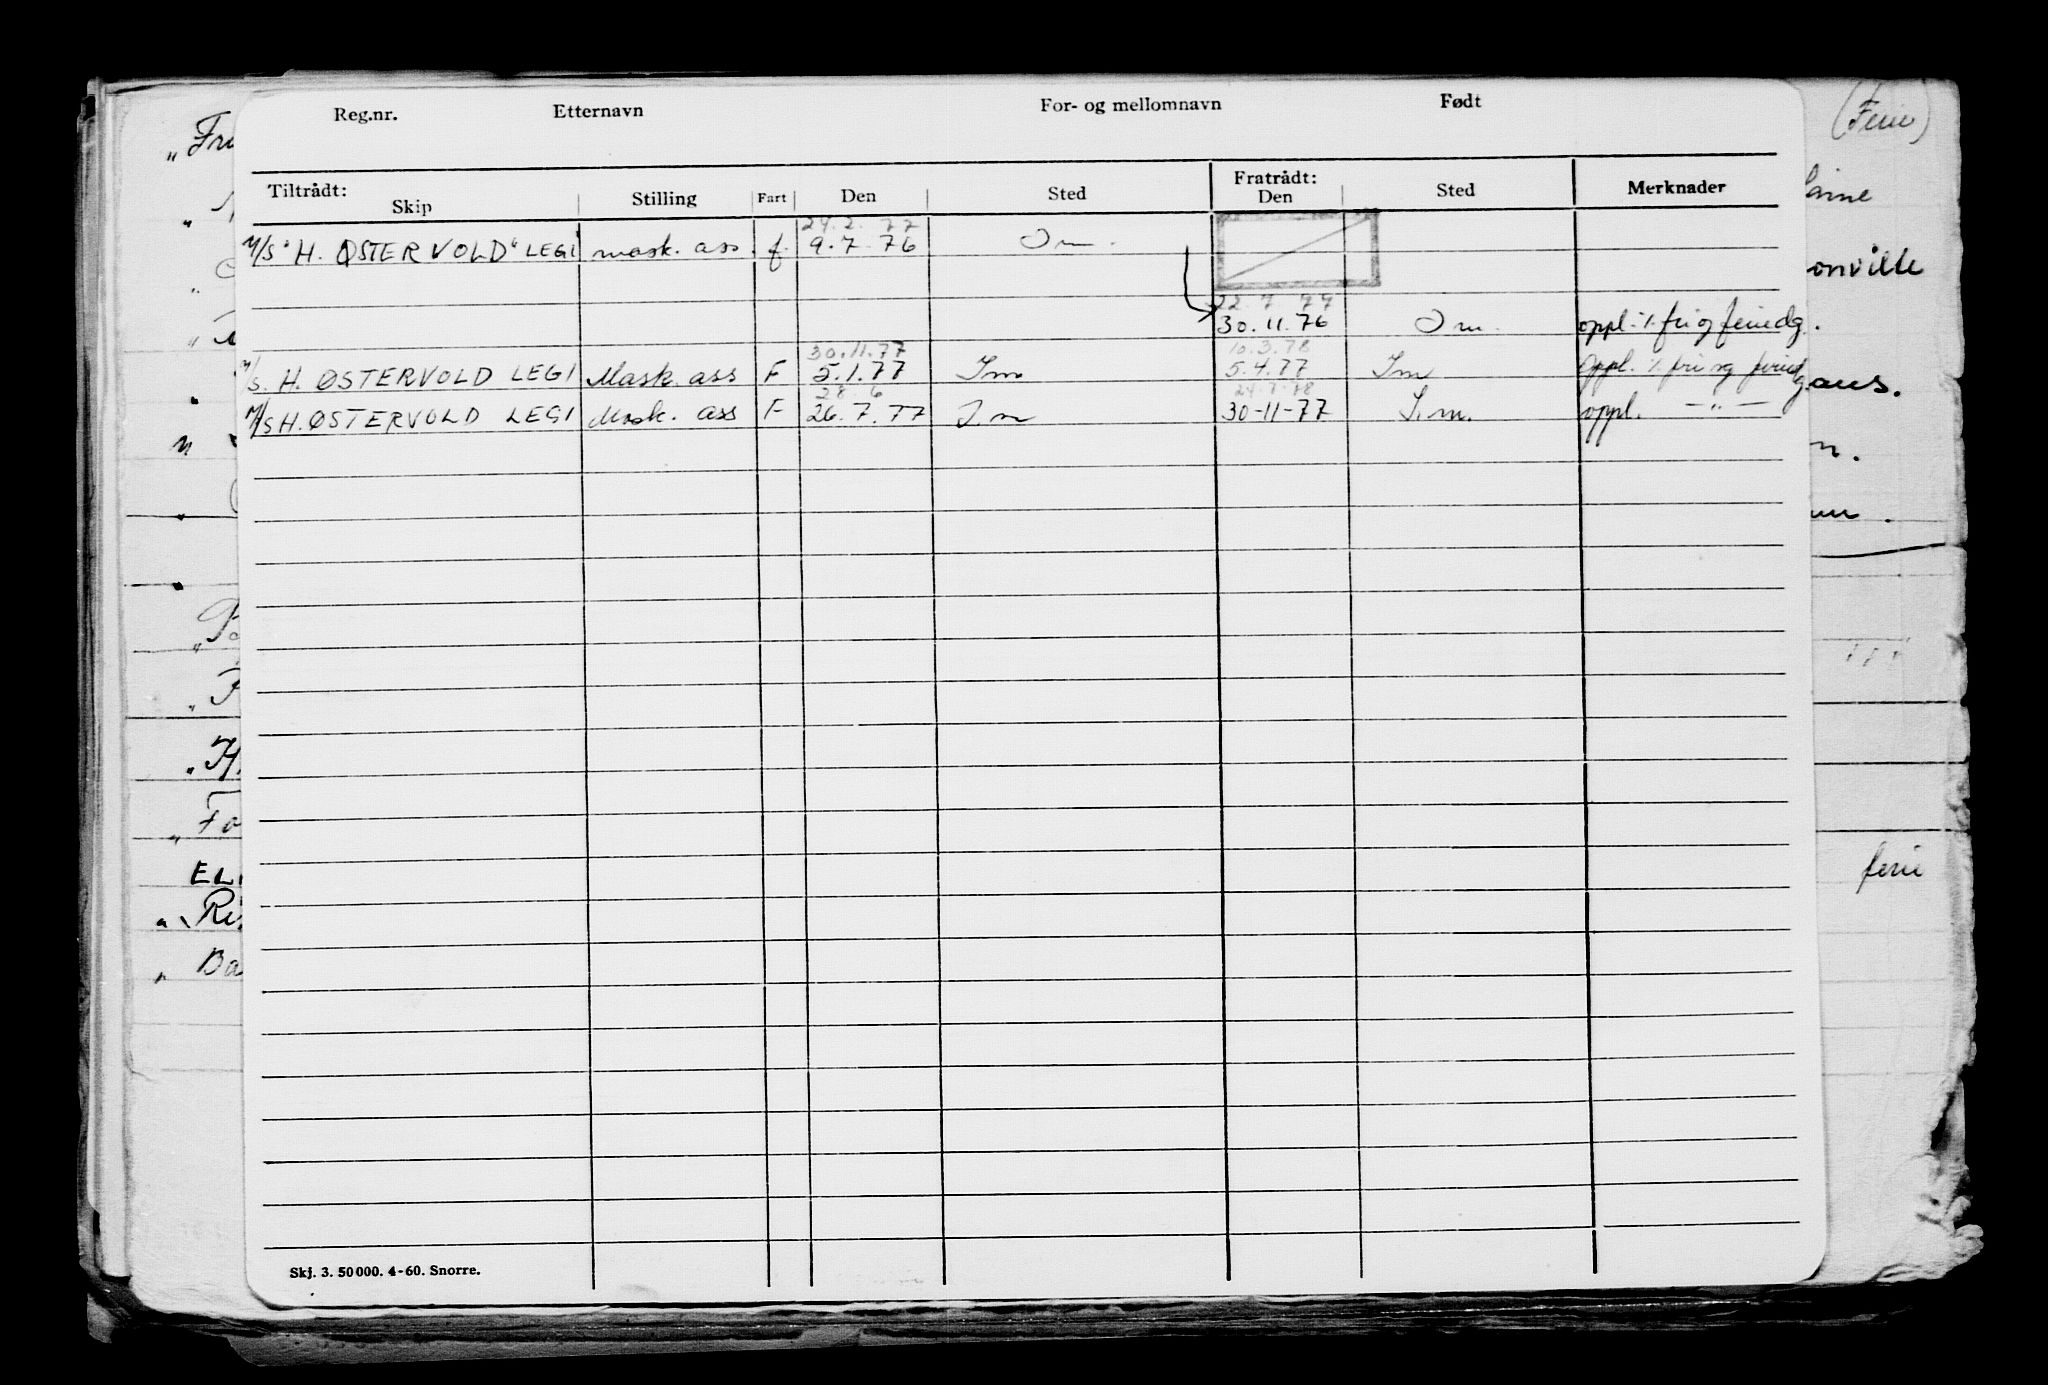 Reg.nr. Etternavn For- og mellomnavn Født (Ferie)
„Fr
Tiltrådt: Fratrådt:
Skip Stilling Fart Den Sted Den Sted Merknader
24.2.77
M/S "H. ØSTERVOLD" LEGI mask. ass. f. 9.7.76 I m.
onville
22.7.77
30.11.76 I m. oppl. % fri og feriedg.
30.11.77 10.3.78
M/S. H. ØSTERVOLD LEGI Mask. ass F 5.1.77 I m 5.4.77 I m Oppl. % fri og feriedg
ans.
28.6 24.7.78
M/S H. ØSTERVOLD LEGI Mask. ass F 26.7.77 I. m 30-11-77 I. m. oppl. — „ —
n.
„H
„Fo
EL ferie
Ri
„ Ba
Skj. 3. 50 000. 4-60. Snorre.